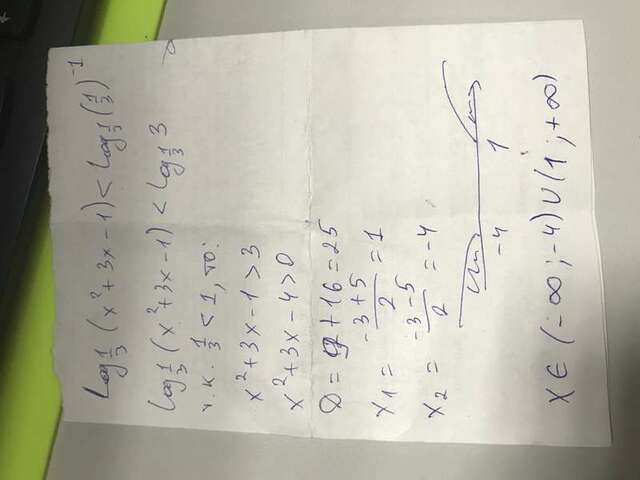 log_{1/3} (x² + 3x - 1) < log_{1/3} (1/3)^{-1}
log_{1/3} (x² + 3x - 1) < log_{1/3} 3
т.к. 1/3 < 1, то:
x² + 3x - 1 > 3
x² + 3x - 4 > 0
D = 9 + 16 = 25
x₁ = (-3 + 5)/2 = 1
x₂ = (-3 - 5)/2 = -4
-4 1
x ∈ (-∞; -4) ∪ (1; +∞)